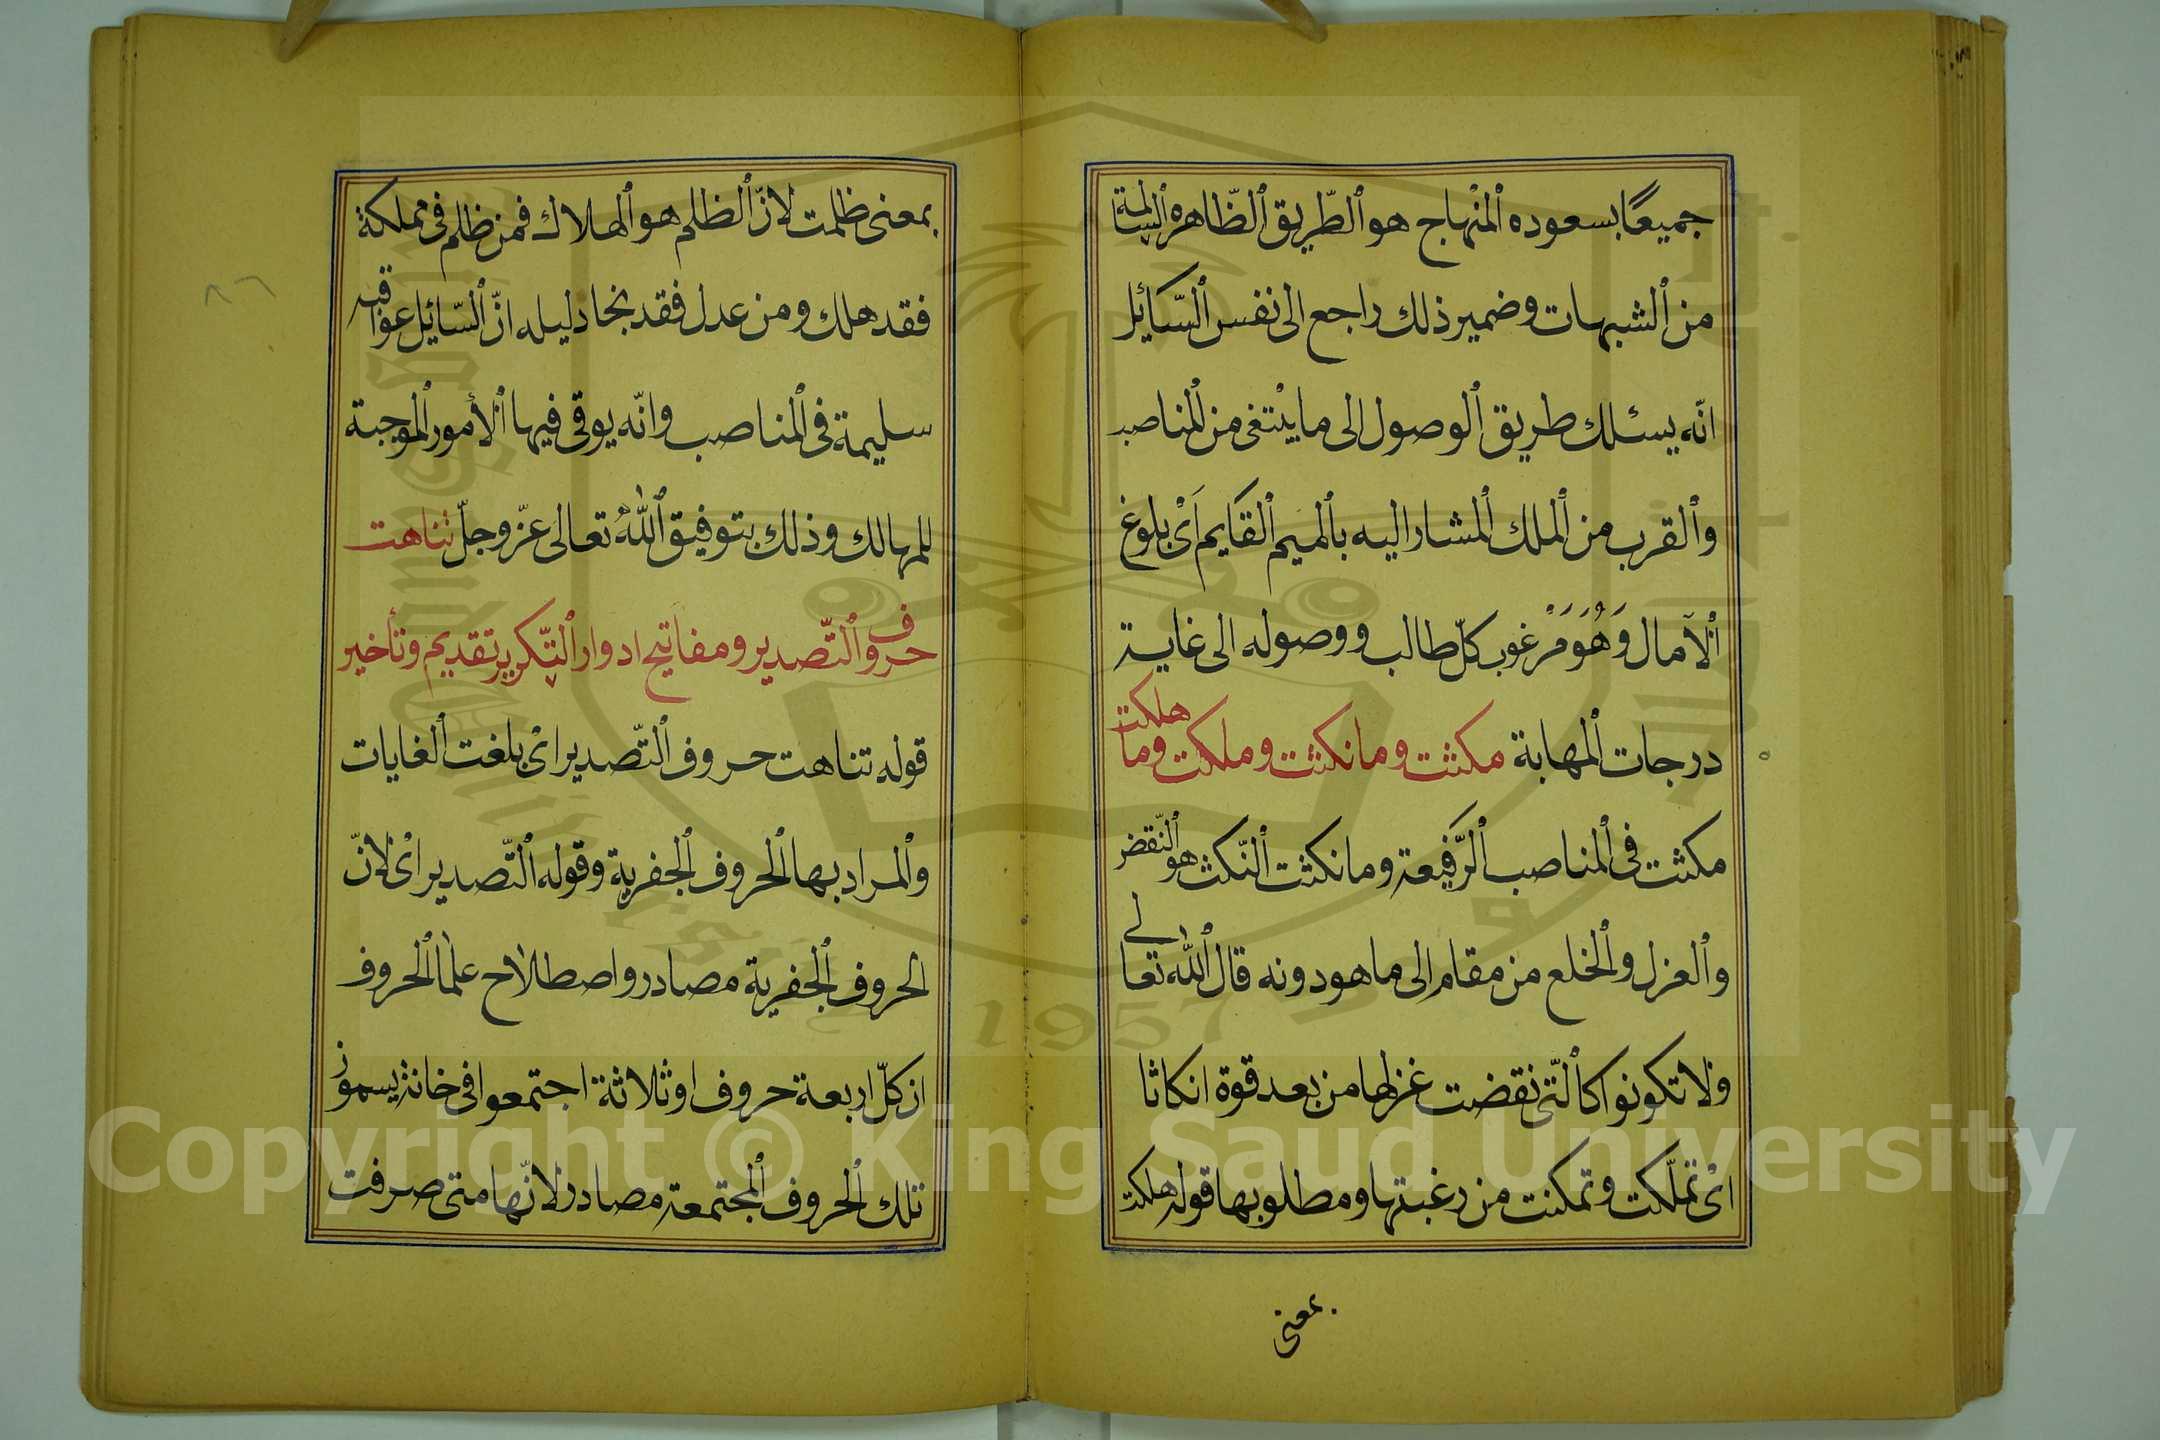 جميعًا بسعوده المنهاج هو الطّريق الظّاهره السالمة
من الشبهات وضمير ذلك راجع الى نفس السّائل
انّه يسئلك طريق الوصول الى ما يبتغى من المناصب
والقرب من الملك المشار اليه بالميم القايم اَىْ بلوغ
الآمال وَهُوَ مَرْغوب كلّ طالب ووصوله الى غاية
درجات المهابة مكثت وما نكثت وملكت وما هلكت
مكثت فى المناصب الرّفيعة وما نكثت النّكث هو النّقض
والعزل والخلع من مقام الى ما هو دونه قال اللّه تعالى
ولا تكونوا كالّتى نقضت غزلها من بعد قوة انكاثا
اىْ تملّكت وتمكنت من رغبتها ومطلوبها قوله هلكت
بمعنى
بمعنى ظلمت لانّ الظلم هو الهلاك فمن ظلم فى مملكة
فقد هلك ومن عدل فقد نجا دليله انّ السّائل عواقبه
سليمة فى المناصب وانّه يوقى فيها الأمور الموجبة
للمهالك وذلك بتوفيق اللّهُ تعالى عزّ وجلّ تناهت
حروف التّصدير ومفاتيح ادوار التّكرير تقديم وتأخير
قوله تناهت حروف التّصدير اىْ بلغت الغايات
والمراد بها الحروف الجفرية وقوله التّصدير اىْ لانّ
الحروف الجفرية مصادر واصطلاح علما الحروف
ان كلّ اربعة حروف او ثلاثة اجتمعوا فى خانة يسمون
تلك الحروف المجتمعة مصادر لانّها متى صرفت
٨٦
1957
Copyright © King Saud University